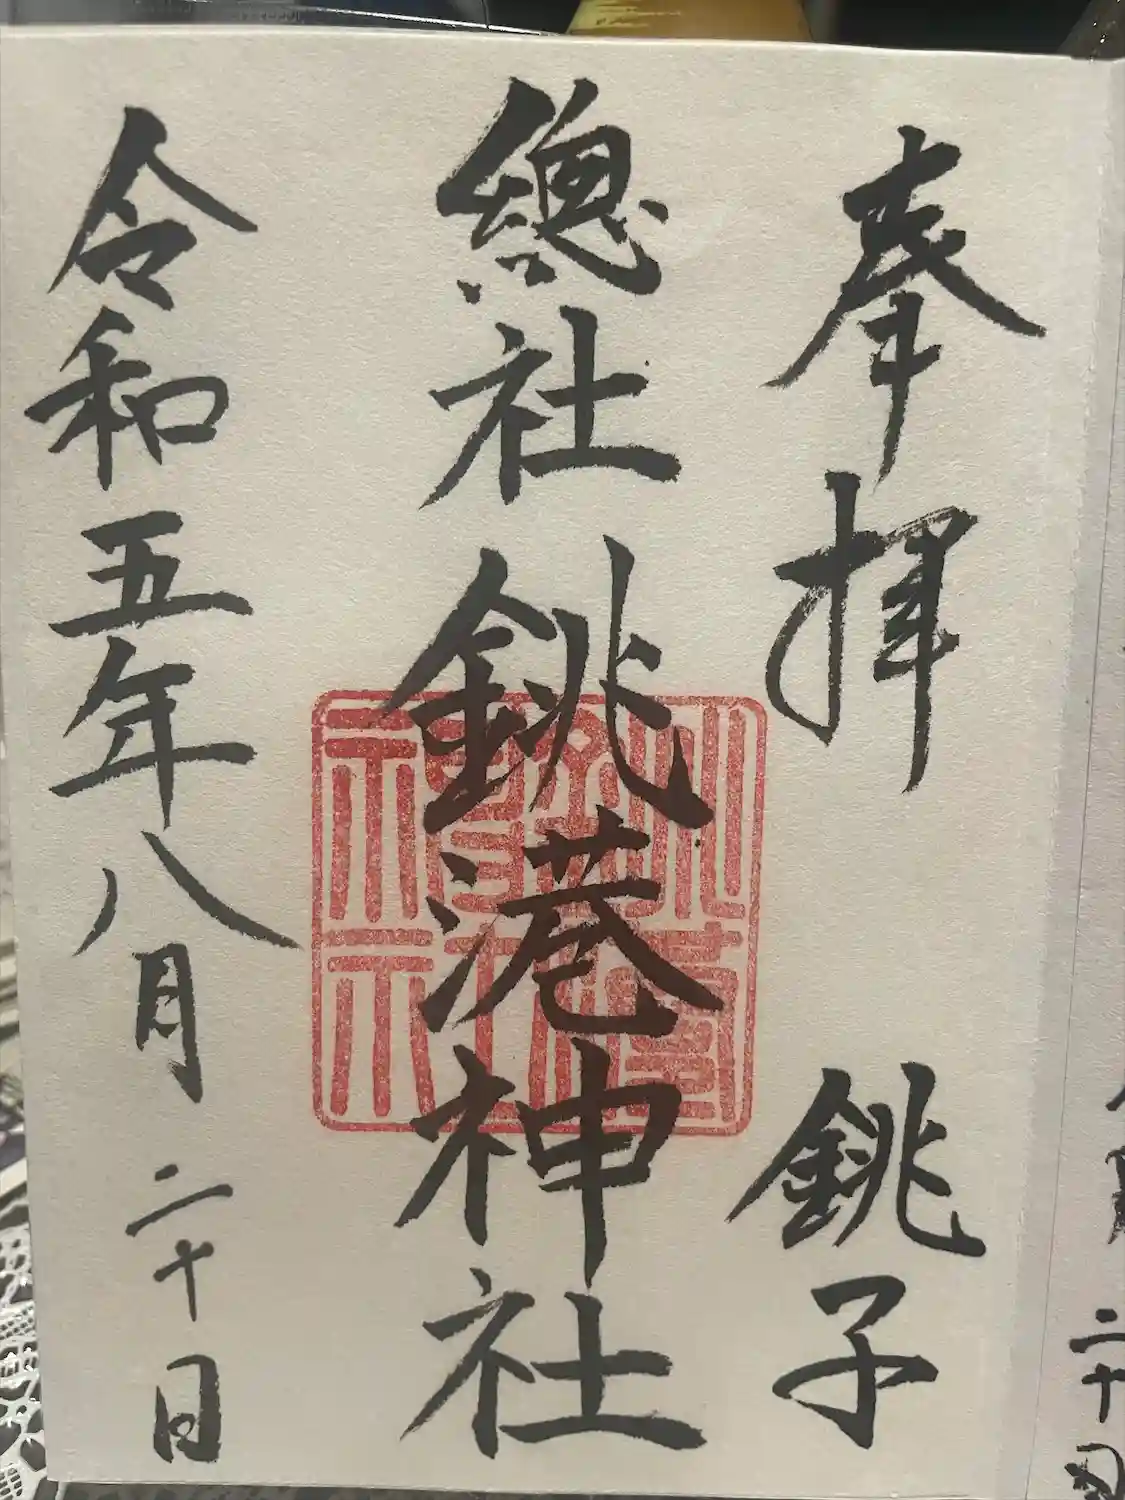 奉拝 銚子
總社 銚港神社
令和五年八月二十日